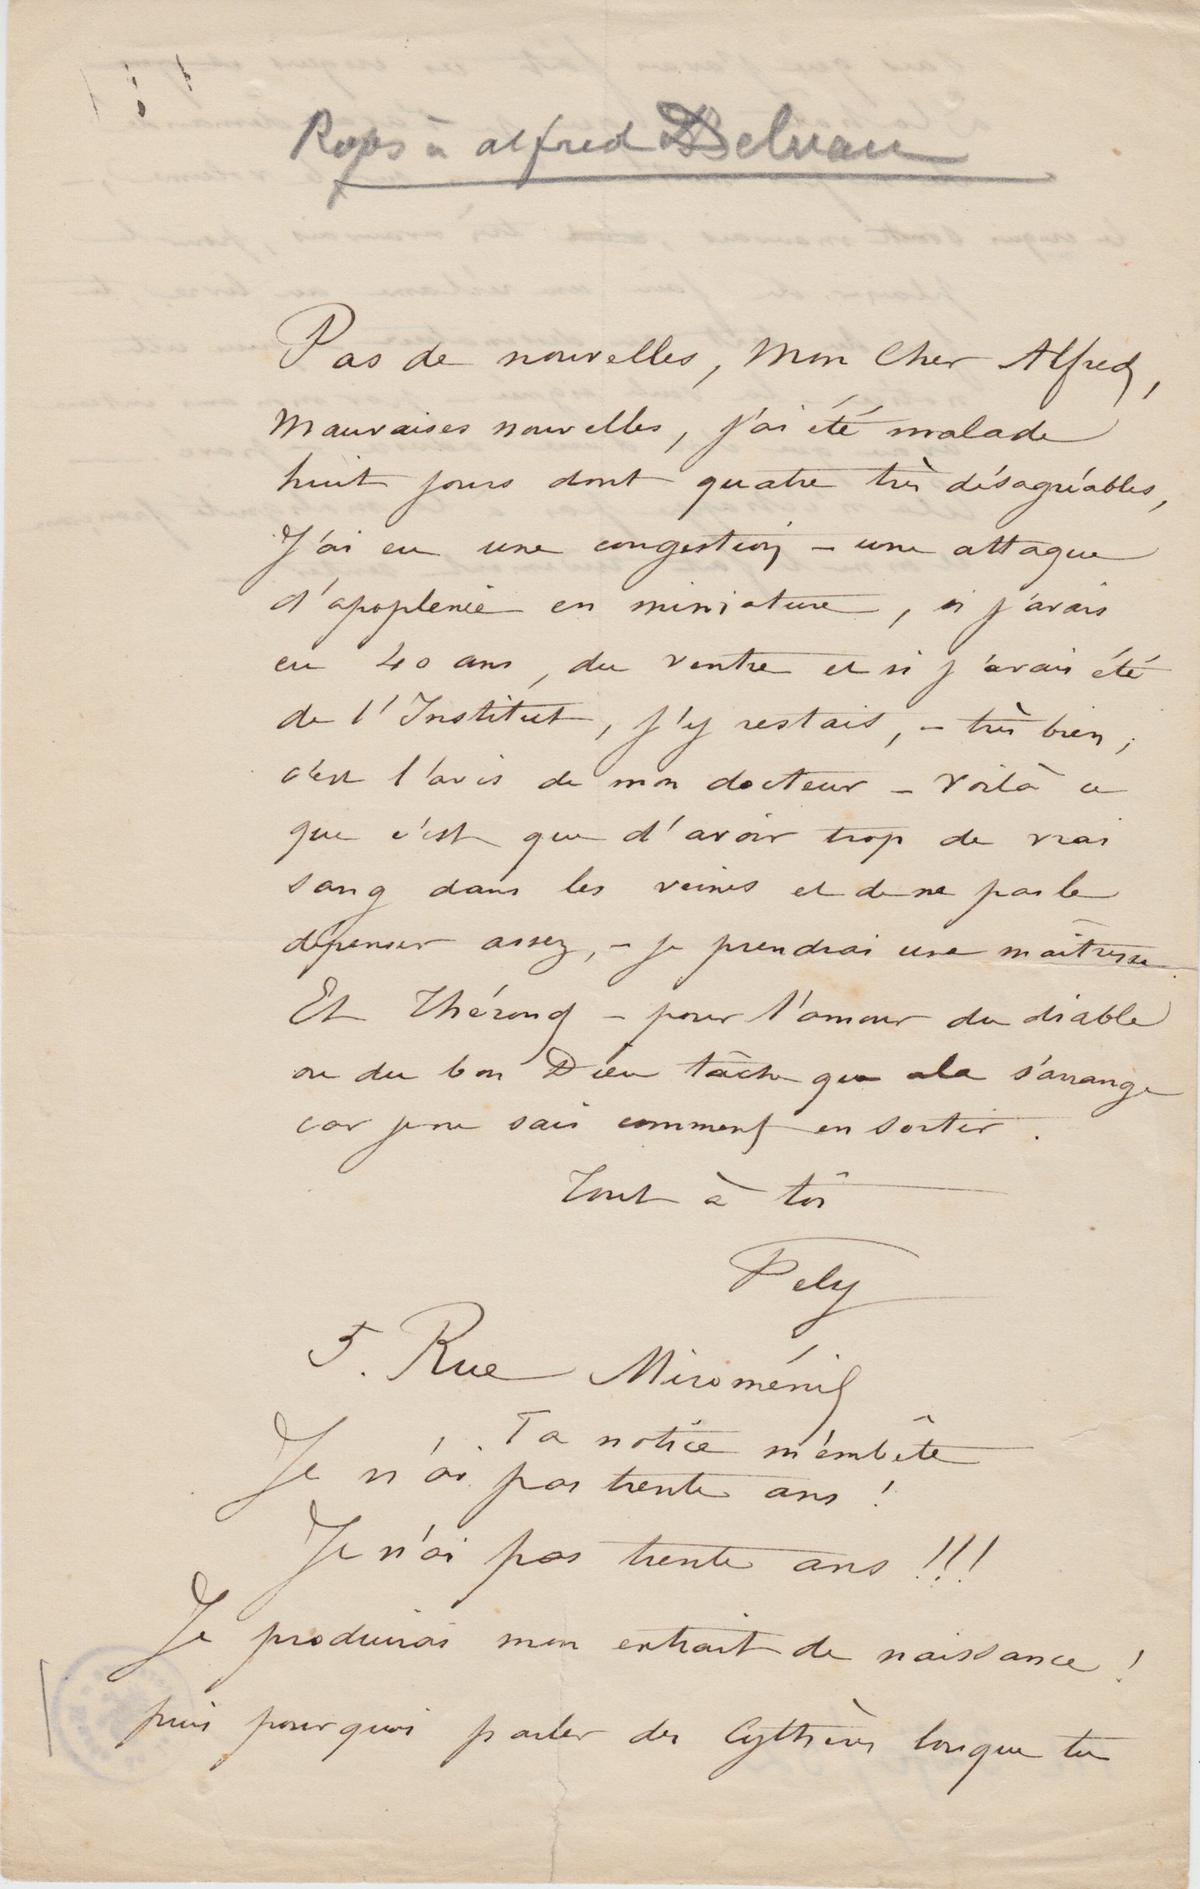 Rops à alfred Delvau
Pas de nouvelles, Mon Cher Alfred,
Mauvaises nouvelles, j'ai été malade
huit jours dont quatre très désagréables,
J'ai eu une congestion – une attaque
d'apoplexie en miniature, si j'avais
eu 40 ans, du ventre et si j'avais été
de l'Institut, j'y restais, – très bien,
c'est l'avis de mon docteur – Voilà ce
que c'est que d'avoir trop de vrai
sang dans les veines et de ne pas le
dépenser assez, – je prendrai une maîtresse.
Et Thérond – pour l'amour du diable
ou du bon Dieu tâche que cela s'arrange
car je ne sais comment en sortir.
Tout à toi
Fély
5. Rue Miroménil
Ta notice m'embête
Je n'ai pas trente ans !
Je n'ai pas trente ans !!!
Je produirai mon extrait de naissance !
puis pourquoi parler des Cythères lorsque tu